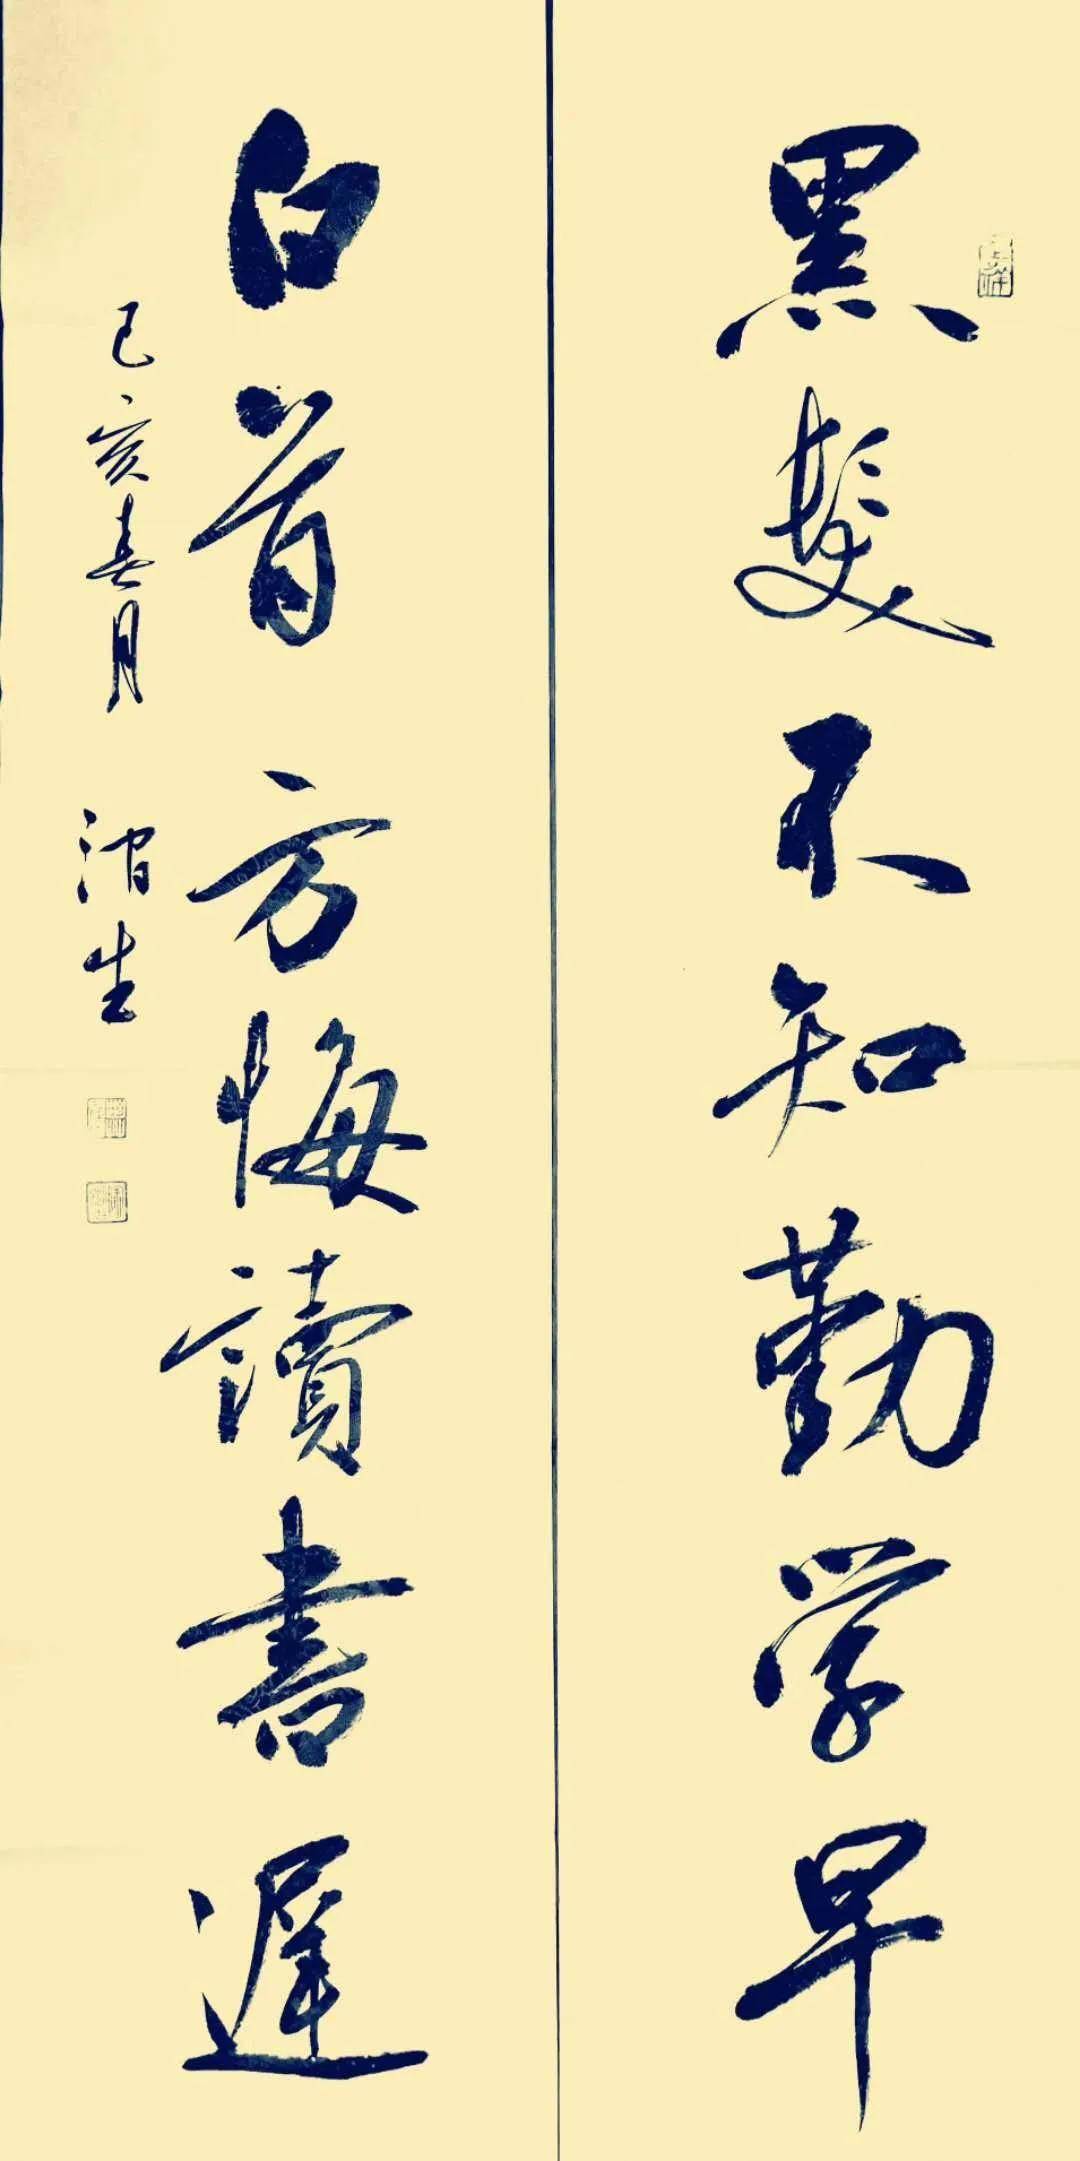 黑髮不知勤学早
白首方悔讀書遲
己亥春月 涽生